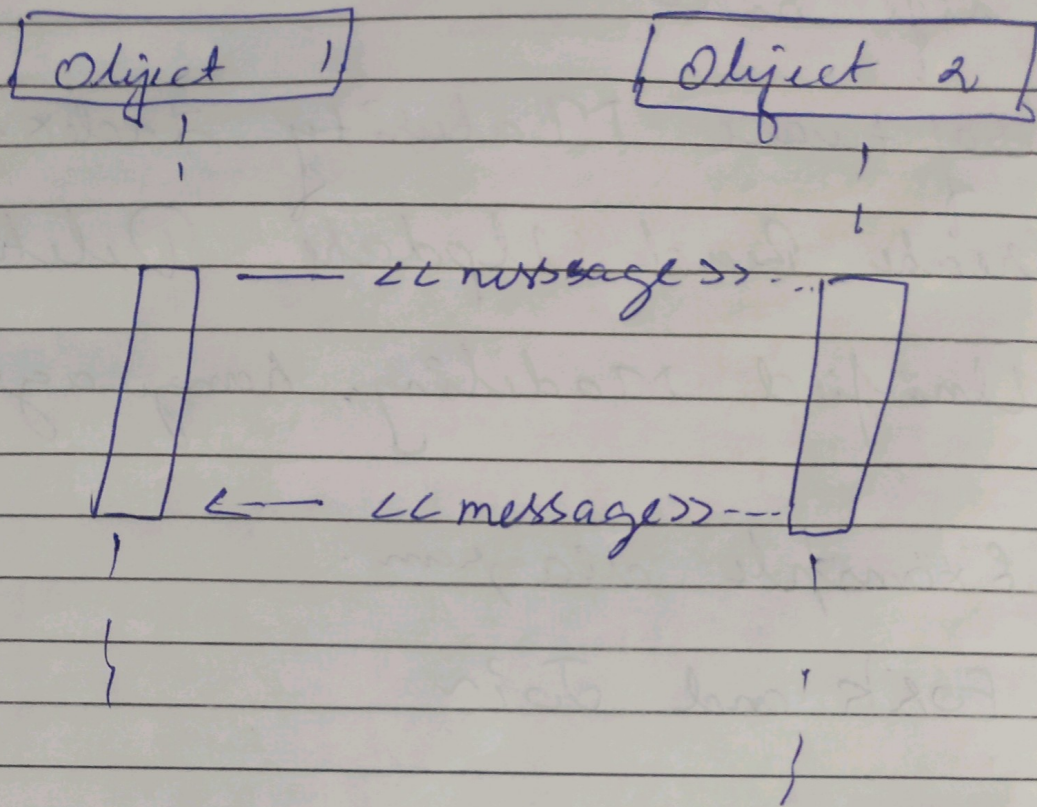 Object 1
Object 2
<<message>>
<<message>>